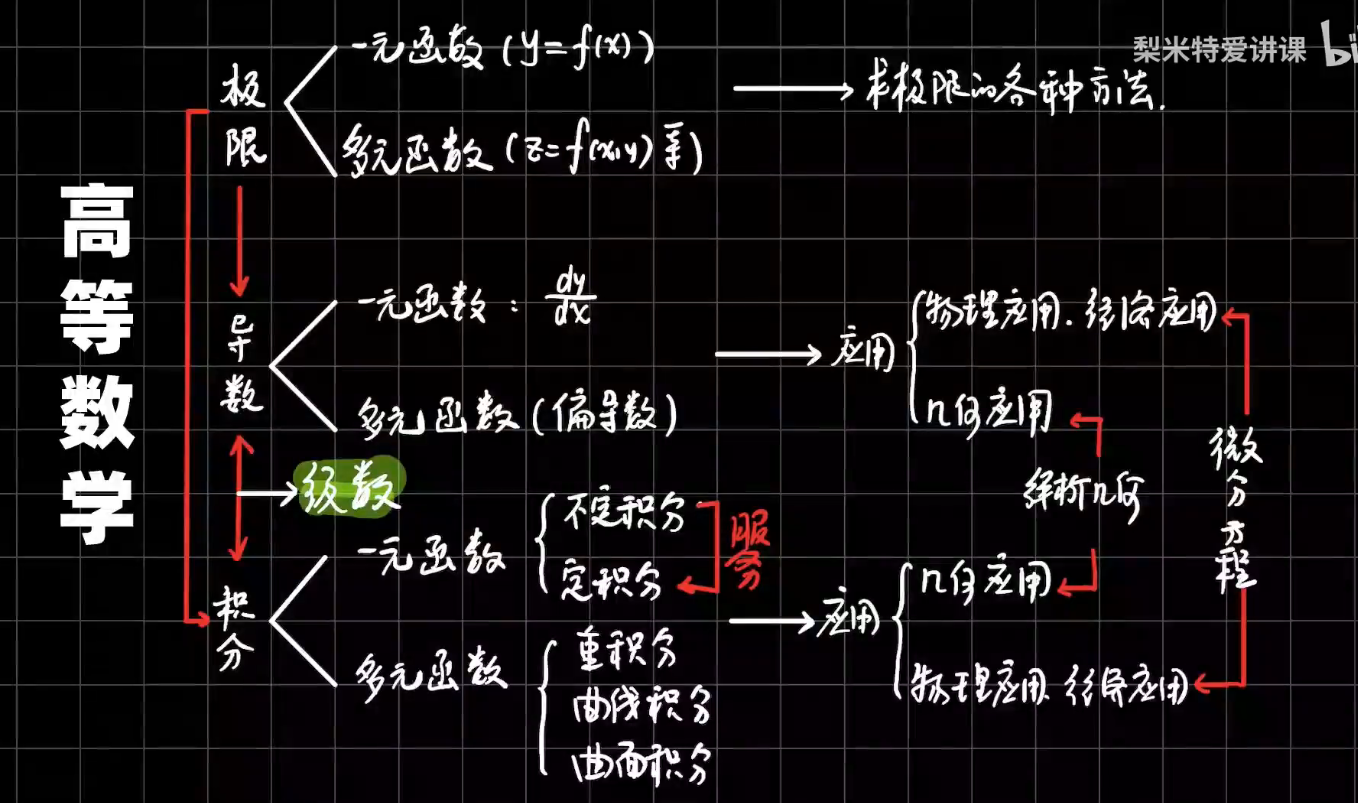 梨米特爱讲课 bi
高等数学
极限
一元函数(y=f(x))
多元函数(z=f(x,y)等)
求极限的各种方法.
导数
一元函数:dy/dx
多元函数(偏导数)
应用
物理应用.经济应用
几何应用
级数
解析几何
微分方程
积分
一元函数
不定积分
定积分
服务
多元函数
重积分
曲线积分
曲面积分
应用
几何应用
物理应用.经济应用